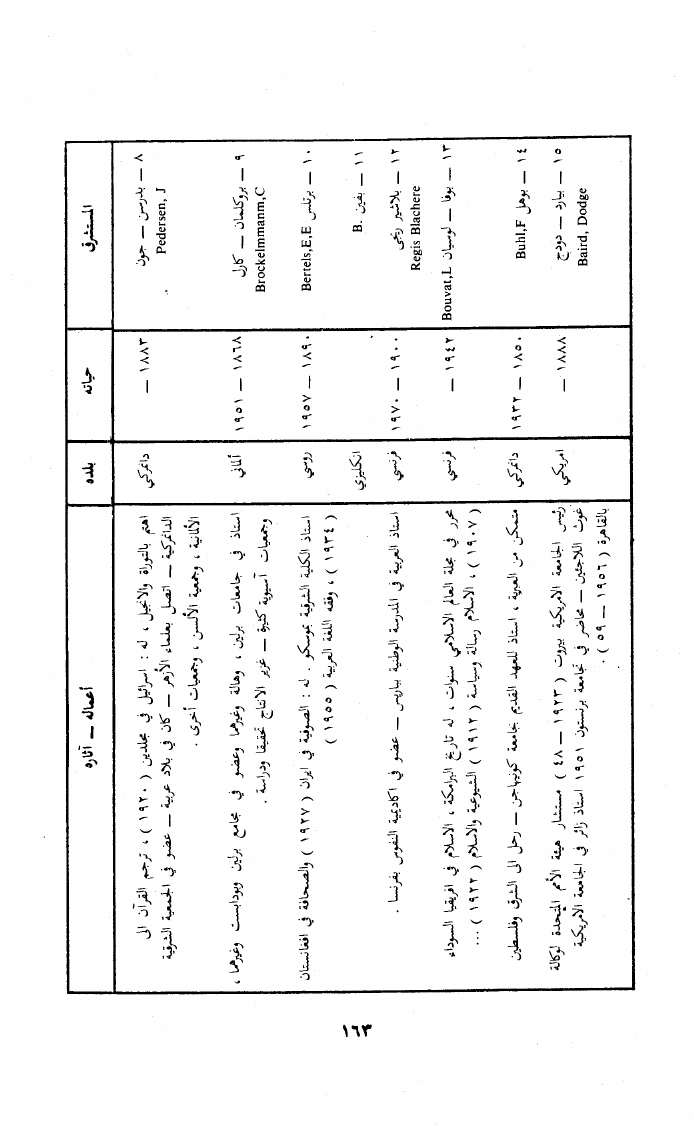 المستشرق	حياته	بلده	أعماله – آثاره
٨ – بدرسن – جون	١٨٨٣ –	دانمركي	اهتم بالتوراة والانجيل ، له : اسرائيل في مجلدين ( ١٩٢٠ ) ، ترجم القرآن الى
Pedersen, J	الدانمركية – اتصل بعلماء الأزهر – كان في بلاد عربية – عضو في الجمعية الشرقية
الألمانية ، وجمعية الألسن ، وجمعيات أخرى .
٩ – بروكلمان – كارل	١٨٦٨ – ١٩٥١	ألماني	استاذ في جامعات برلين ، وهالة وغيرها وعضو في مجامع برلين وبودابست وغيرهما ،
Brockelmmanm,C	وجمعيات آسيوية كثيرة – غزير الانتاج تحقيقا ودراسة .
١٠ – برتلس Bertels,E,E	١٨٩٠ – ١٩٥٧	روسي	استاذ الكلية الشرقية بموسكو . له : الصوفية في ايران ( ١٩٢٧ ) والصحافة في افغانستان
( ١٩٣٤ ) ، وفقه اللغة العربية ( ١٩٥٥ )
١١ – بفين B.	انكليزي
١٢ – بلاشير ريجي	١٩٠٠ – ١٩٧٠	فرنسي	استاذ العربية في المدرسة الوطنية بباريس – عضو في اكاديمية النقوش بفرنسا .
Regis Blachere
١٣ – بوفا – لوسيان Bouvat,L	– ١٩٤٢	فرنسي	محرر في مجلة العالم الاسلامي سنوات ، له تاريخ البرامكة ، الاسلام في افريقيا السوداء
( ١٩٠٧ ) ، الاسلام رسالة وسياسة ( ١٩١٢ ) الشيوعية والاسلام ( ١٩٢٢ ) ...
١٤ – بوهل Buhl,F	١٨٥٠ – ١٩٣٢	دانمركي	متمكن من العبرية ، استاذ للعهد القديم بجامعة كوبنهاجن – رحل الى الشرق وفلسطين
١٥ – بيارد – دودج	١٨٨٨ –	امريكي	رئيس الجامعة الامريكية ببيروت ( ١٩٢٣ – ٤٨ ) مستشار هيئة الأمم المتحدة لوكالة
Baird, Dodge	غوث اللاجئين – محاضر في جامعة برنستون ١٩٥١ استاذ زائر في الجامعة الامريكية
بالقاهرة ( ١٩٥٦ – ٥٩ ) .
١٦٣